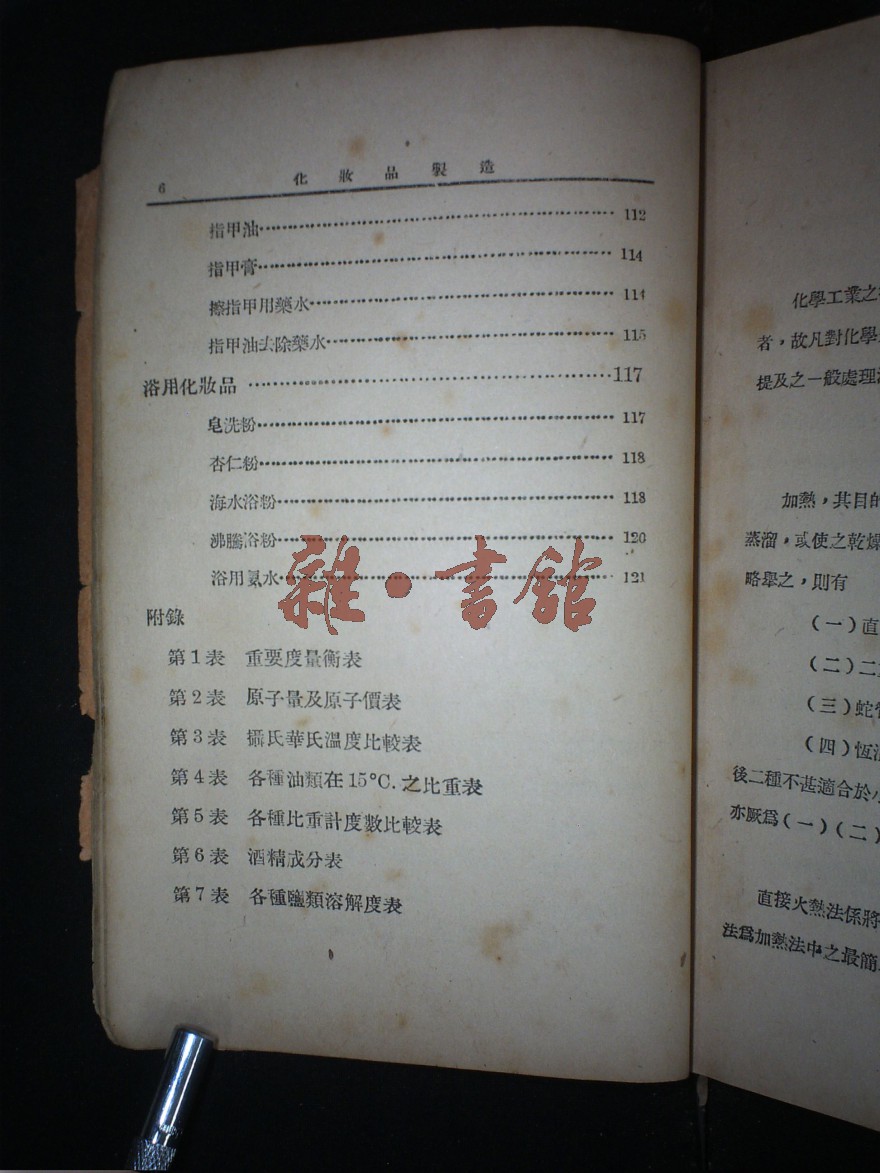 6 化妝品製造
指甲油 112
指甲膏 114
擦指甲用藥水 114
指甲油去除藥水 115
浴用化妝品 117
皂洗粉 117
杏仁粉 118
海水浴粉 118
沸騰浴粉 120
浴用氨水 121
雜·書館
附錄
第1表 重要度量衡表
第2表 原子量及原子價表
第3表 攝氏華氏溫度比較表
第4表 各種油類在15°C.之比重表
第5表 各種比重計度數比較表
第6表 酒精成分表
第7表 各種鹽類溶解度表
化學工業之
者，故凡對化學
提及之一般處理
加熱，其目的
蒸溜，或使之乾燥
略舉之，則有
（一）直
（二）二
（三）蛇
（四）恆
後二種不甚適合於小
亦厥爲（一）（二）
直接火熱法係將
法爲加熱法中之最簡